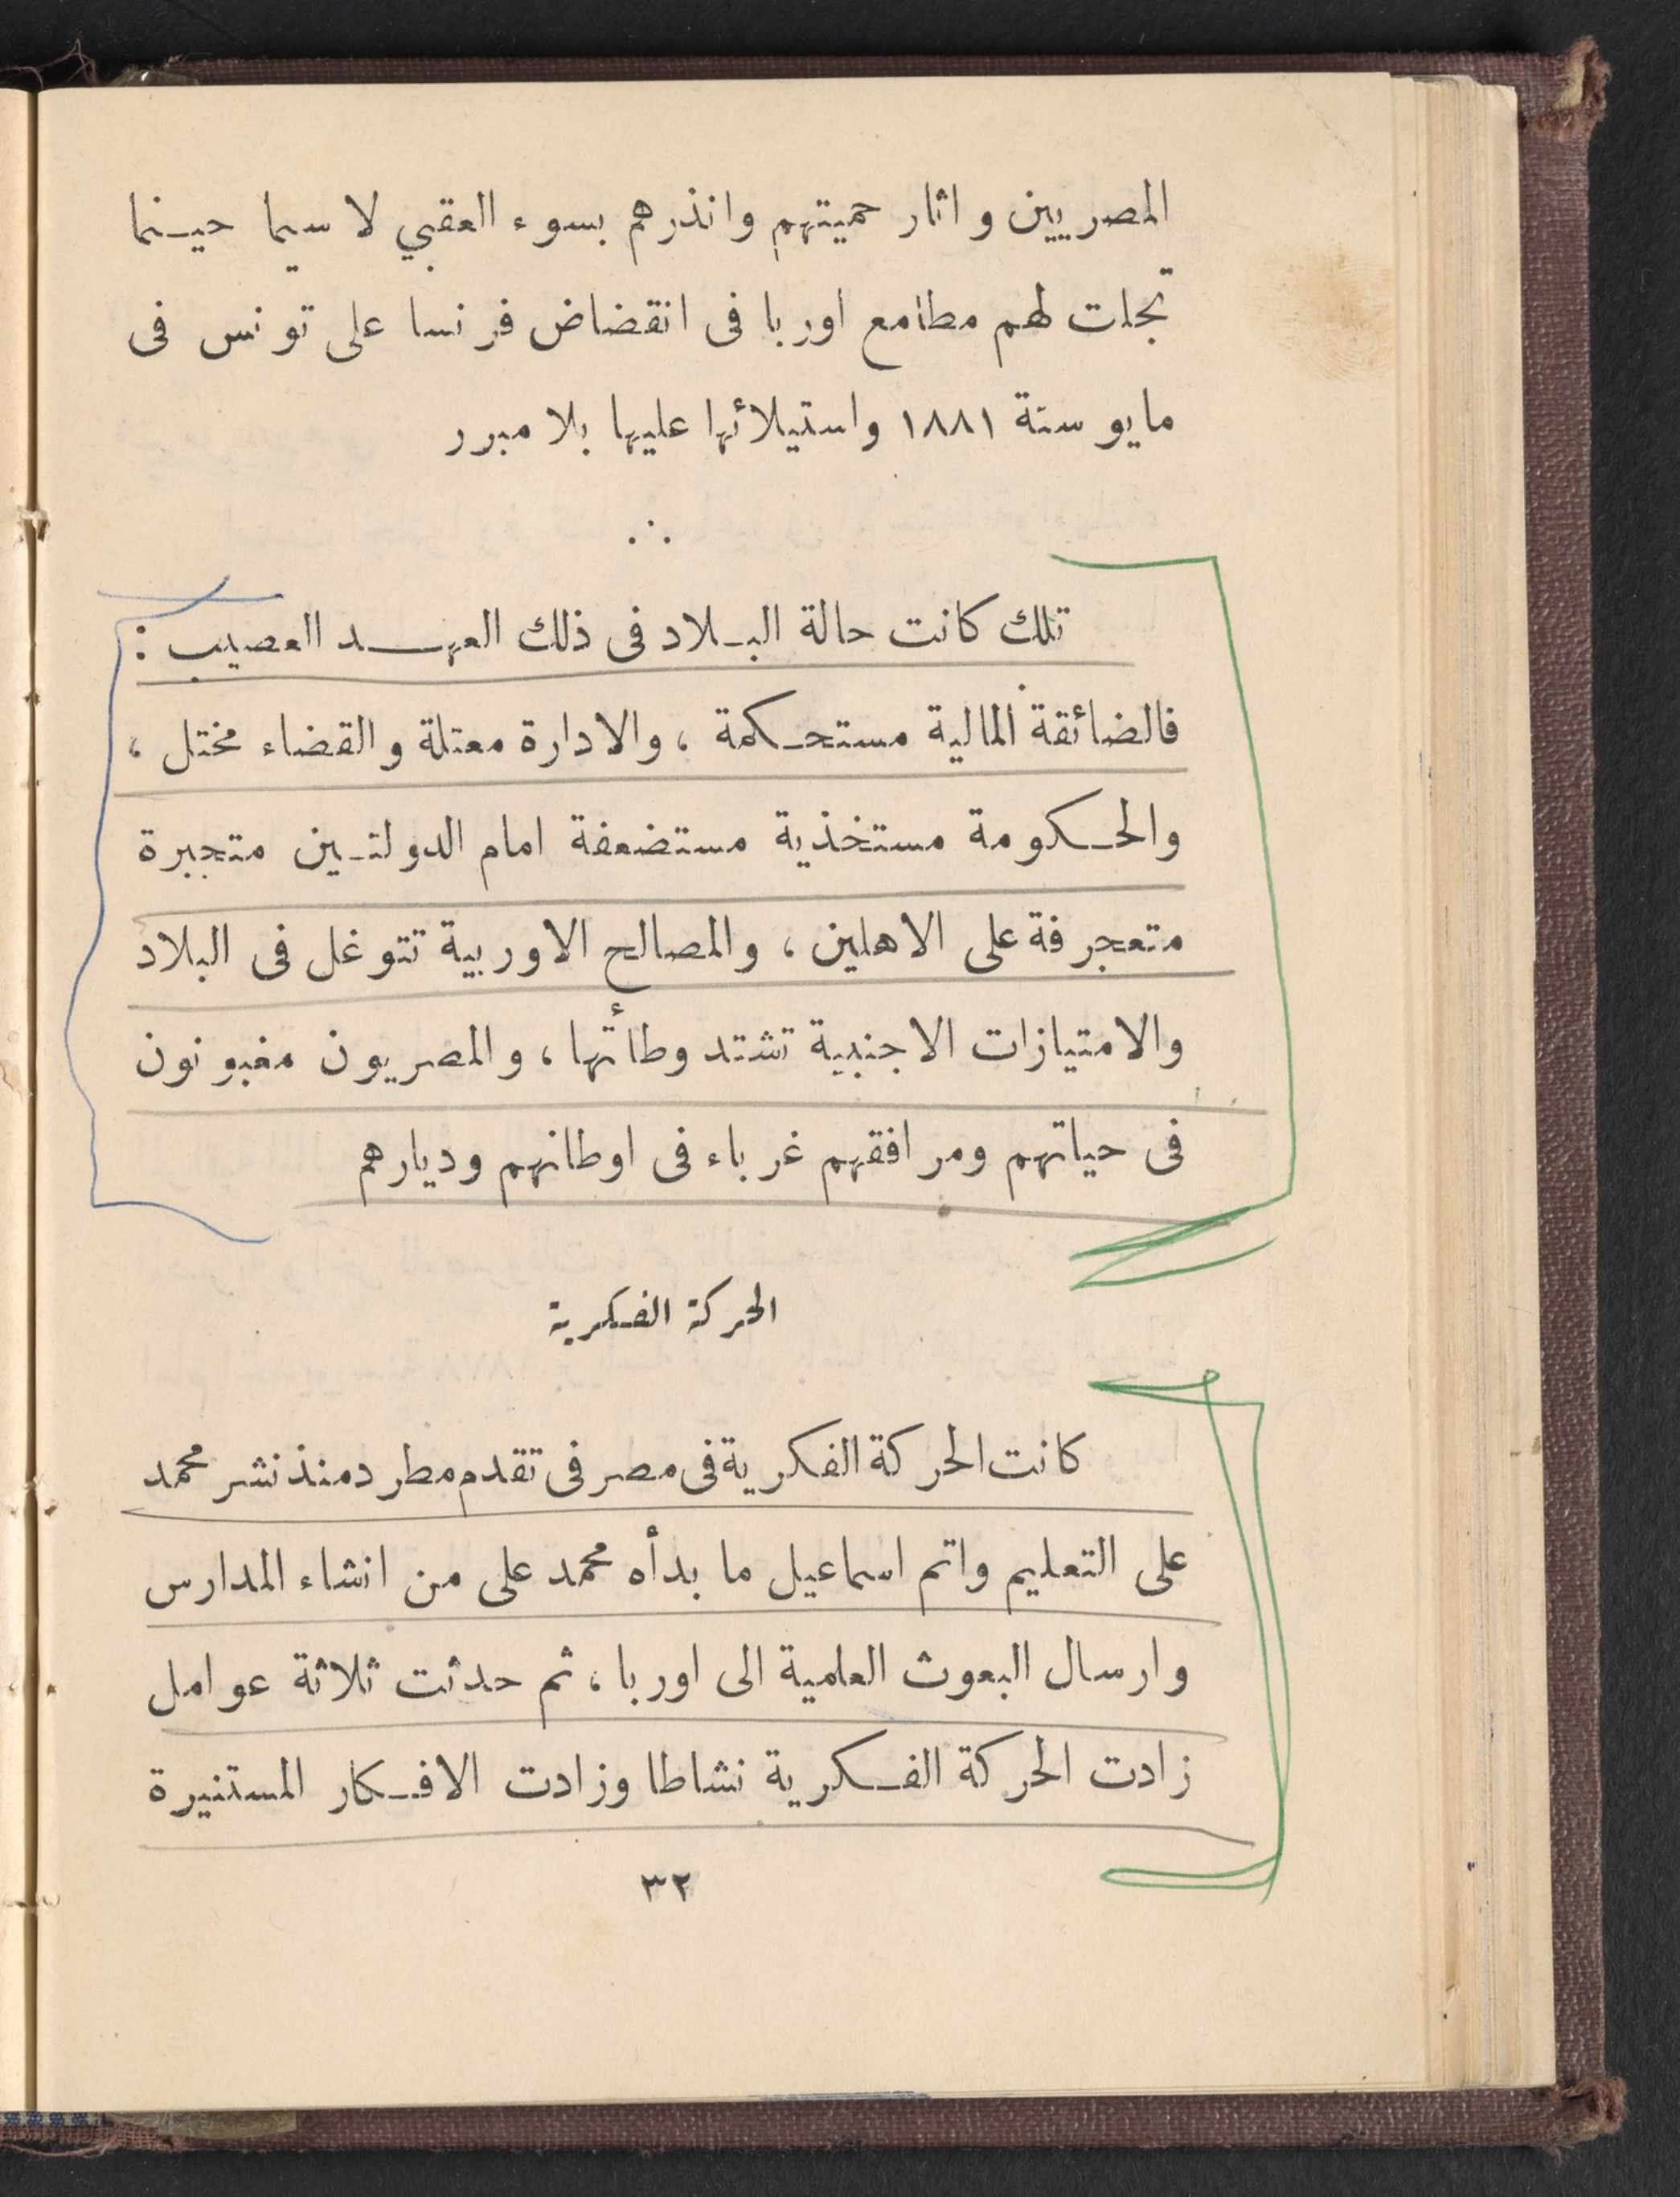 المصريين واثار حميتهم وانذرهم بسوء العقبي لا سيما حينما
تجلت لهم مطامع اوربا فى انقضاض فرنسا على تونس فى
مايو سنة ١٨٨١ واستيلائها عليها بلا مبرر
تلك كانت حالة البلاد فى ذلك العهد العصيب :
فالضائقة المالية مستحكمة ، والادارة معتلة والقضاء مختل ،
والحكومة مستخذية مستضعفة امام الدولتين متجبرة
متعجرفة على الاهلين ، والمصالح الاوربية تتوغل فى البلاد
والامتيازات الاجنبية تشتد وطأتها ، والمصريون مغبونون
فى حياتهم ومرافقهم غرباء فى اوطانهم وديارهم
الحركة الفكرية
كانت الحركة الفكرية فى مصر فى تقدم مطرد منذ نشر محمد
على التعليم واتم اسماعيل ما بدأه محمد على من انشاء المدارس
وارسال البعوث العلمية الى اوربا ، ثم حدثت ثلاثة عوامل
زادت الحركة الفكرية نشاطا وزادت الافكار المستنيرة
٣٢